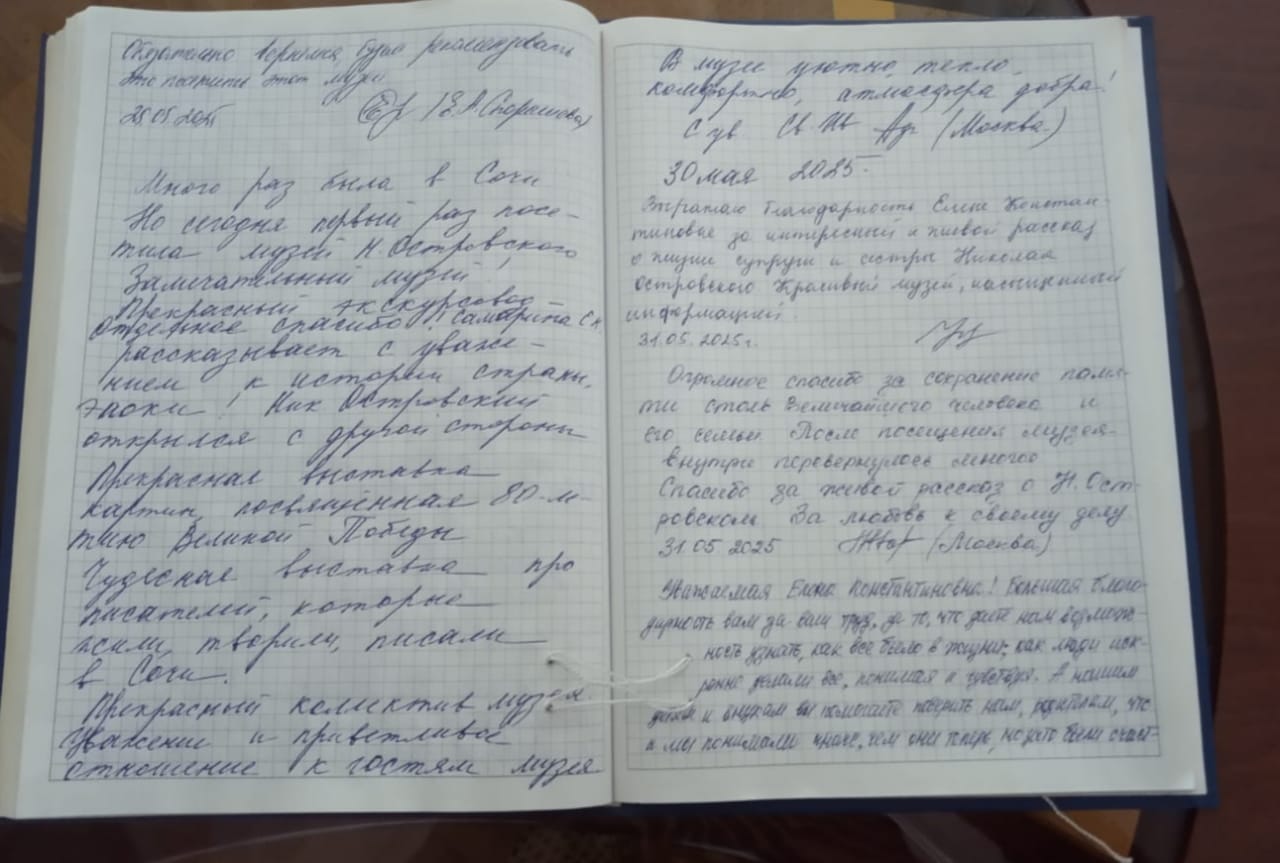 Обязательно вернемся, будем рекомендовать
посетить этот музей
28.05.2025 (Е.А. )
Много раз была в Сочи
Но сегодня первый раз посе-
тила музей Н. Островского
Замечательный музей!
Прекрасный экскурсовод
Отдельное спасибо! Самарина С Н
рассказывает с уваже-
нием к истории страны,
эпохи! Ник Островский
открылся с другой стороны
Прекрасная выставка
картин, посвящённая 80-м-
тию Великой Победы
Чудесная выставка про
писателей, которые
жили, творили, писали
в Сочи.
Прекрасный коллектив музея.
Уважение и приветливое
отношение к гостям музея
В музее уютно, тепло,
комфортно, атмосфера добра!
С ув. (Москва)
30 мая 2025
Выражаю благодарность Елене Констан-
тиновне за интересный и живой рассказ
о жизни супруги и сестры Николая
Островского Красивый музей, насыщенный
информацией.
31.05.2025г.
Огромное спасибо за сохранение памя-
ти столь величайшего человека и
его семьи. После посещения музея
внутри перевернулось многое
Спасибо за живой рассказ о Н. Ост-
ровском. За любовь к своему делу
31.05 2025 (Москва)
Уважаемая Елена Константиновна! Большая благо-
дарность вам за ваш труд, за то, что даёте нам возмож-
ность узнать, как все было в жизни, как люди иск-
ренно делали все, понимая и чувствуя. А нашим
детям и внукам вы помогаете поверить нам, родителям, что
и мы понимали иначе, чем они теперь, но были счаст-